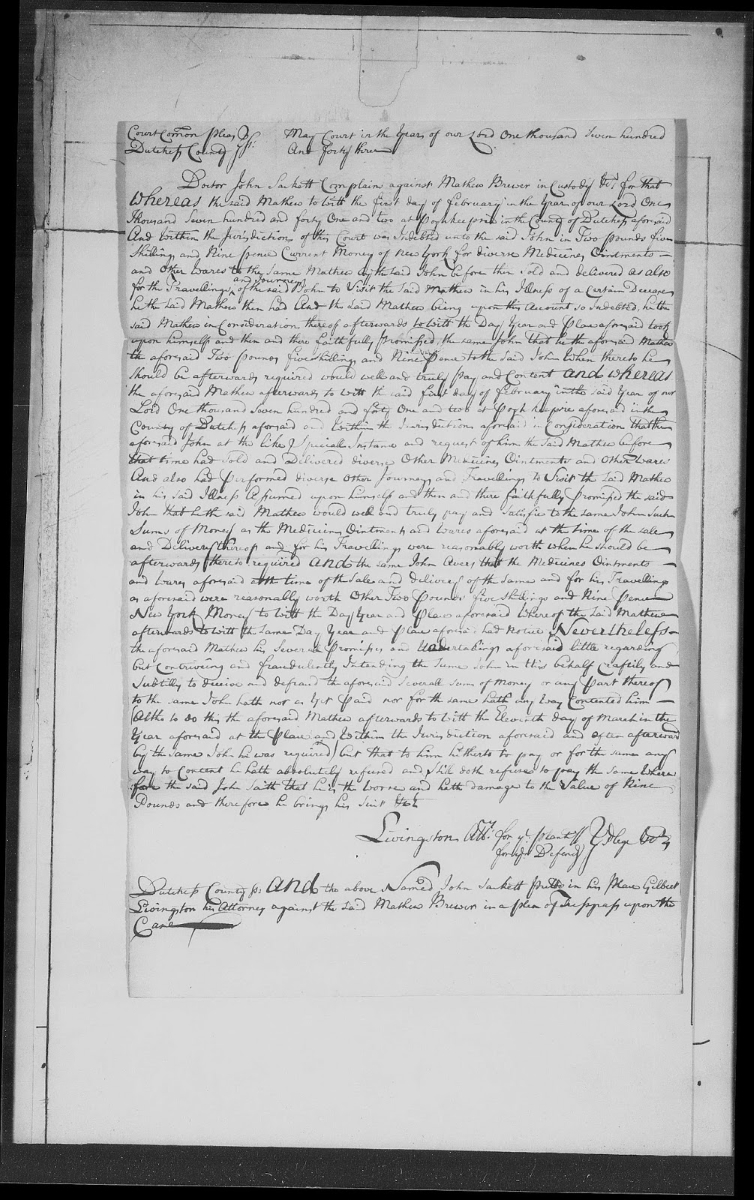 Court Comon Pleas
Dutchess County ss: May Court in the Year of our Lord One thousand Seven hundred
And Forty three
Doctor John Sackett Complain against Mathew Brewer in Custody &c. for that
Whereas the said Mathew to with the first day of February in the Year of our Lord One
Thousand Seven hundred and forty One and two at Poynkeepsie in the County of Dutchess aforesaid
And Within the Jurisdiction of this Court was Indebted unto the said John in Two pounds five
Shillings and Nine pence Current Money of New York for diverse Medicines Ointments
and Other Wares to the Same Mathew by the said John before then sold and delivered As also
for the Travellings and Journeys of the said John to Visit the Said Mathew in his Illness of a Certain Decease
he the said Mathew then had And the said Mathew being upon that Account so Indebted, he the
said Mathew in Consideration thereof afterwards to With the Day Year and Place aforesaid took
upon himself and then and there faithfully Promised, the same John that he the aforesaid Mathew
the aforesaid Two pounds five shillings and Nine Pence to the said John When thereto he
should be afterwards required would well and truly pay and Content And Whereas
the aforesaid Mathew afterwards to With the said first day of February in the said Year of our
Lord One thousand Seven hundred and forty One and two at Poghkeepsie aforesaid in the
County of Dutchess aforesaid and Within the Jurisdiction aforesaid in Consideration that the
aforesaid John at the like Special Instance and request of him the Said Mathew before
that time had Sold and Delivered diverse Other Medicines Ointments and Other Wares
And also had Performed diverse Other Journeys and Travellings to Visit the said Mathew
in his said Illness Assumed upon himself and then and there faithfully Promised the said
John that he the said Mathew would well and truly pay and Satisfie to the same John such
Sums of Money as the Medicines Ointments and Wares aforesaid at the time of the sale
and Delivery thereof and for his Travellings were reasonably worth When he should be
afterwards thereto required And the same John Avers that the Medicines Ointments
and Wares aforesaid at the time of the Sale and delivery of the Same and for his Travelling
as aforesaid were reasonably worth Other Two Pounds five Shillings and Nine Pence
New York Money to With the Day Year and Place aforesaid Whereof the said Mathew
afterwards to With the Same Day Year and Place aforesaid had Notice Nevertheless
the aforesaid Mathew his Several Promises and Undertakings aforesaid little regarding
but Contriving and fraudulently Intending the Same John in this behalf Craftily and
Subtilly to deceive and defraud the aforesaid Severall Sums of Money or any Part thereof
to the same John hath not as Yet Paid nor for the same hath any Way Contented him
(Altho to do this the aforesaid Mathew afterwards to With the Eleventh day of March in the
Year aforesaid at the Place and Within the Jurisdiction aforesaid and often afterward
by the Same John he was required) but that to him hitherto to pay or for the same any
way to Content he hath absolutely refused and still doth refuse to pay the Same Where
fore the said John Saith that he is the Worse and hath Damage to the Value of Nine
Pounds and therefore he brings his Suit &c
Livingston Att. for ye. Plantiff
for ye Defend
Dutchess County ss: And the above Named John Sackett Putts in his Place Gilbert
Livingston his Attorney against the said Mathew Brewer in a plea of Trespass upon the
Case